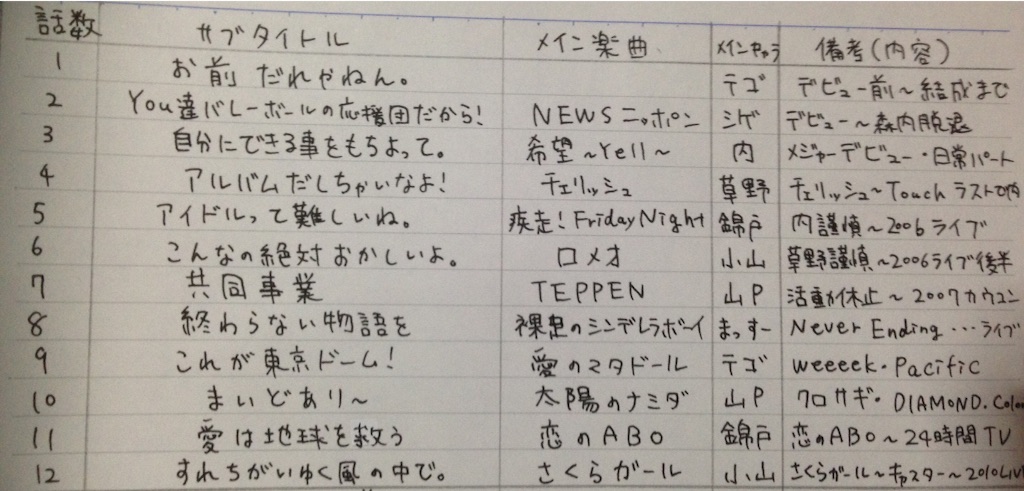 話数 サブタイトル メイン楽曲 メインキャラ 備考(内容)
1 お前だれやねん。 テゴ デビュー前~結成まで
2 You達バレーボールの応援団だから! NEWSニッポン シゲ デビュー~森内脱退
3 自分にできる事をもちよって。 希望~Yell~ 内 メジャーデビュー・日常パート
4 アルバムだしちゃいなよ! チェリッシュ 草野 チェリッシュ~Touch ラストで内
5 アイドルって難しいね。 疾走!FridayNight 錦戸 内謹慎~2006ライブ
6 こんなの絶対おかしいよ。 ロメオ 小山 草野謹慎~2006ライブ後半
7 共同事業 TEPPEN 山P 活動休止~2007カウコン
8 終わらない物語を 裸足のシンデレラボーイ まっすー Never Ending…ライブ
9 これが東京ドーム! 愛のマタドール テゴ weeeek・Pacific
10 まいどあり~ 太陽のナミダ 山P クロサギ・DIAMOND.Color
11 愛は地球を救う 恋のABO 錦戸 恋のABO~24時間TV
12 すれちがいゆく風の中で。 さくらガール 小山 さくらガール~キャスター~2010LIVE